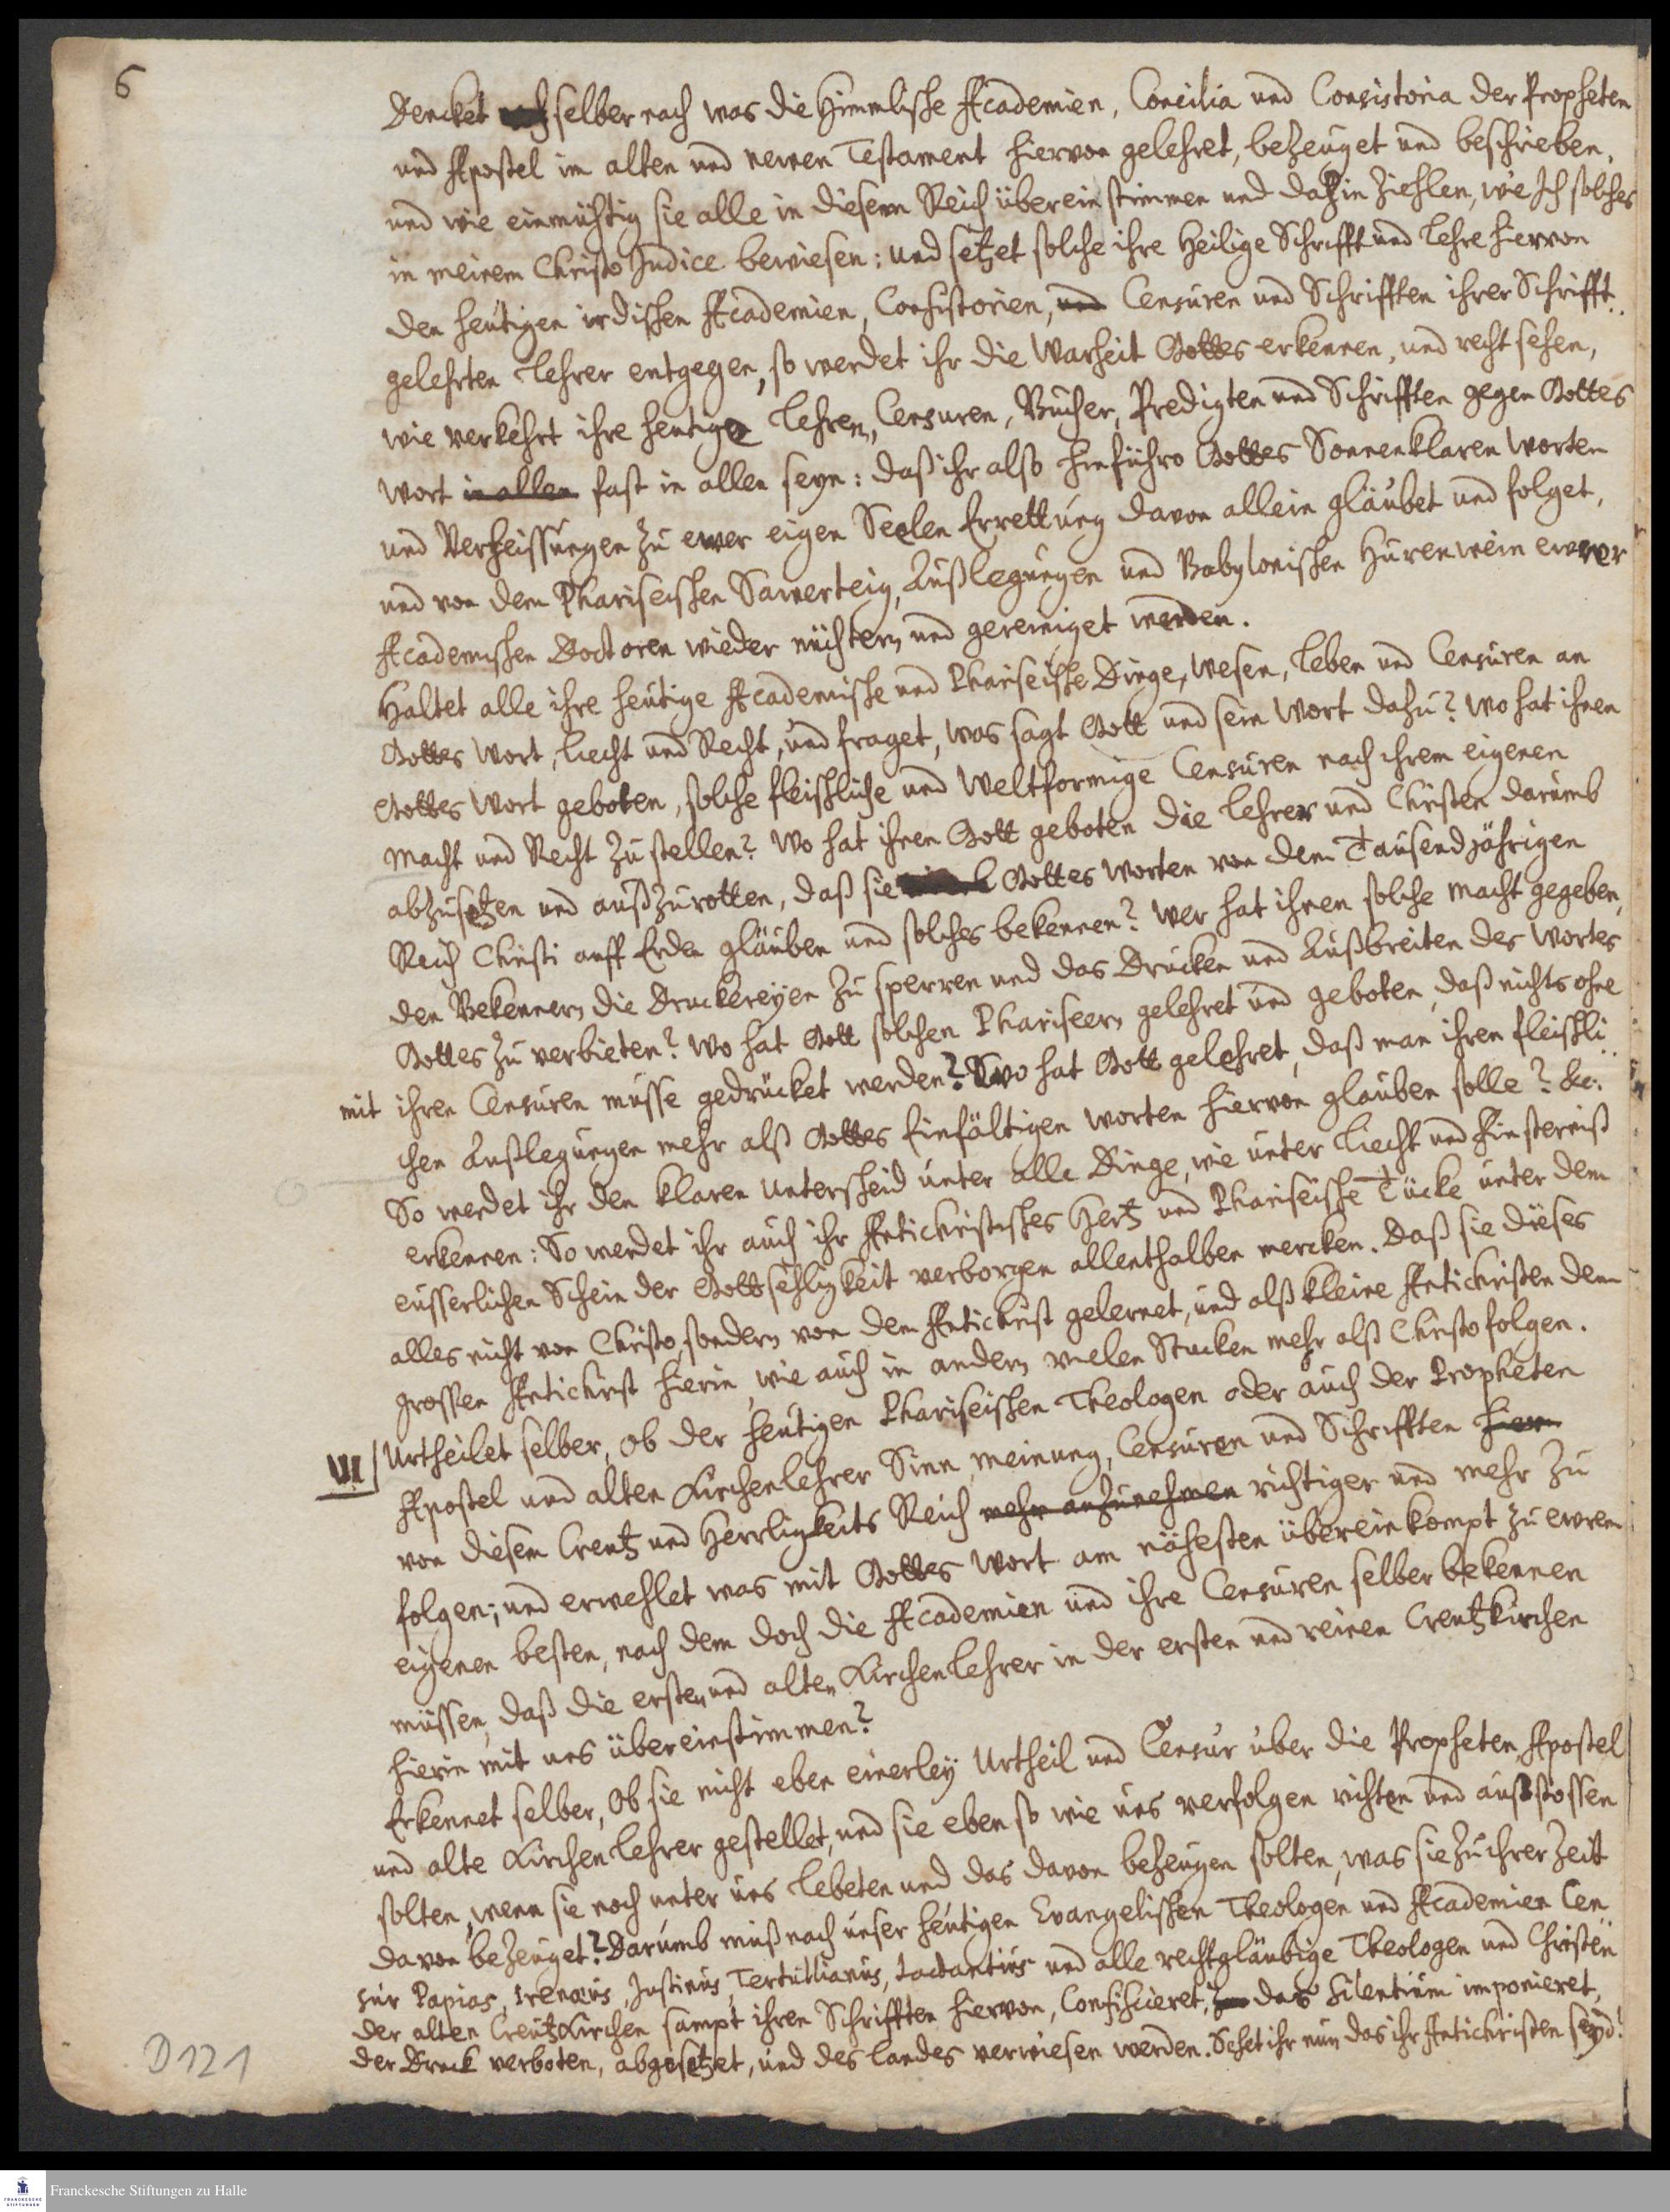 6
Dencket selber nach was die Himmlische Academien, Concilia und Consistoria der Propheten
und Apostel im alten und newen Testament hiervon gelehret, bezeuget und beschrieben,
und wie einmühtig sie alle in diesem Reich überein stimmen und dahin ziehlen, wie Ich solches
in meinem Christo Judice bewiesen: und setzet solche ihre Heilige Schrifft und Lehre hiervon
den heutigen irdischen Academien, Consistorien, und Censuren und Schrifften ihrer Schrifft..
gelehrten Lehrer entgegen, so werdet ihr die Warheit Gottes erkennen, und recht sehen,
wie verkehrt ihre heutige Lehren, Censuren, Bücher, Predigten und Schrifften gegen Gottes
Wort in allen fast in allen seyn: daß ihr also hinführo Gottes Sonnenklaren Worten
und Verheissungen zu ewer eigen Seelen Errettung davon allein gläubet und folget,
und von dem Phariseischen Sawerteig, Außlegungen und Babylonischen Hurenwein ewrer
Academischen Doctoren wieder nüchtern und gereiniget werden.
Haltet alle ihre heutige Academische und Phariseische Dinge, Wesen, Leben und Censuren an
Gottes Wort, Liecht und Recht, und fraget, was sagt Gott und sein Wort dazu? Wo hat ihnen
Gottes Wort geboten, solche fleischliche und Weltformige Censuren nach ihrem eigenen
Macht und Recht zu stellen? Wo hat ihnen Gott geboten die Lehrer und Christen darumb
abzusetzen und außzurotten, daß sie Gottes Worten von dem Tausendjährigen
Reich Christi auff Erden gläuben und solches bekennen? Wer hat ihnen solche macht gegeben,
den Bekennern die Druckereyen zu sperren und das Drucken und Außbreiten des Wortes
Gottes zu verbieten? Wo hat Gott solchen Phariseern gelehret und geboten, daß nichts ohne
mit ihren Censuren müsse gedrücket werden? Wo hat Gott gelehret, daß man ihren fleischli..
chen Außlegungen mehr alß Gottes Einfältigen Worten hiervon glauben solle? &c.
So werdet ihr den klaren Unterscheid unter alle Dinge, wie unter Liecht und Finsterniß
erkennen: So werdet ihr auch ihr Antichristisches Hertz und Phariseische Tücke unter dem
eusserlichen Schein der Gottsehligkeit verborgen allenthalben mercken. Daß sie dieses
alles nicht von Christo, sondern von dem Antichrist gelernet, und alß kleine Antichristen dem
grossen Antichrist hierin, wie auch in andern vielen Stucken mehr alß Christo folgen.
VI/ Urtheilet selber, ob der heutigen Phariseischen Theologen oder auch der Propheten
Apostel und alten Kirchenlehrer Sinn, meinung, Censuren und Schrifften hiern
von diesem Creutz und Herrligkeits Reich mehr anzunehmen richtiger und mehr zu
folgen; und erwehlet was mit Gottes Wort am nähesten übereinkompt zu ewrem
eigenen besten, nach dem doch die Academien und ihre Censuren selber bekennen
müssen, daß die ersten und alten Kirchenlehrer in der ersten und reinen Creutzkirchen
hierin mit uns übereinstimmen?
Erkennet selber, Ob sie nicht eben einerley Urtheil und Censur über die Propheten, Apostel
und alte Kirchen Lehrer gestellet, und sie eben so wie uns verfolgen richten und außstossen
solten, wenn sie noch unter uns lebeten und das davon bezeugen solten, was sie zu ihrer Zeit
davon bezeuget? Darumb muß nach unser heutigen Evangelischen Theologen und Academien Cen
sur Papias, Irenæus, Justinus, Tertullianus, Lactantius und alle rechtgläubige Theologen und Christen
der alten Creutzkirchen sampt ihren Schrifften hiervon, Confisciret, das Silentium imponieret,
der Druck verboten, abgesetzet, und des Landes verwiesen werden. Sehet ihr nun das ihr Antichristen seyd?
D121
Franckesche Stiftungen zu Halle
FRANCKESCHE
STIFTUNGEN